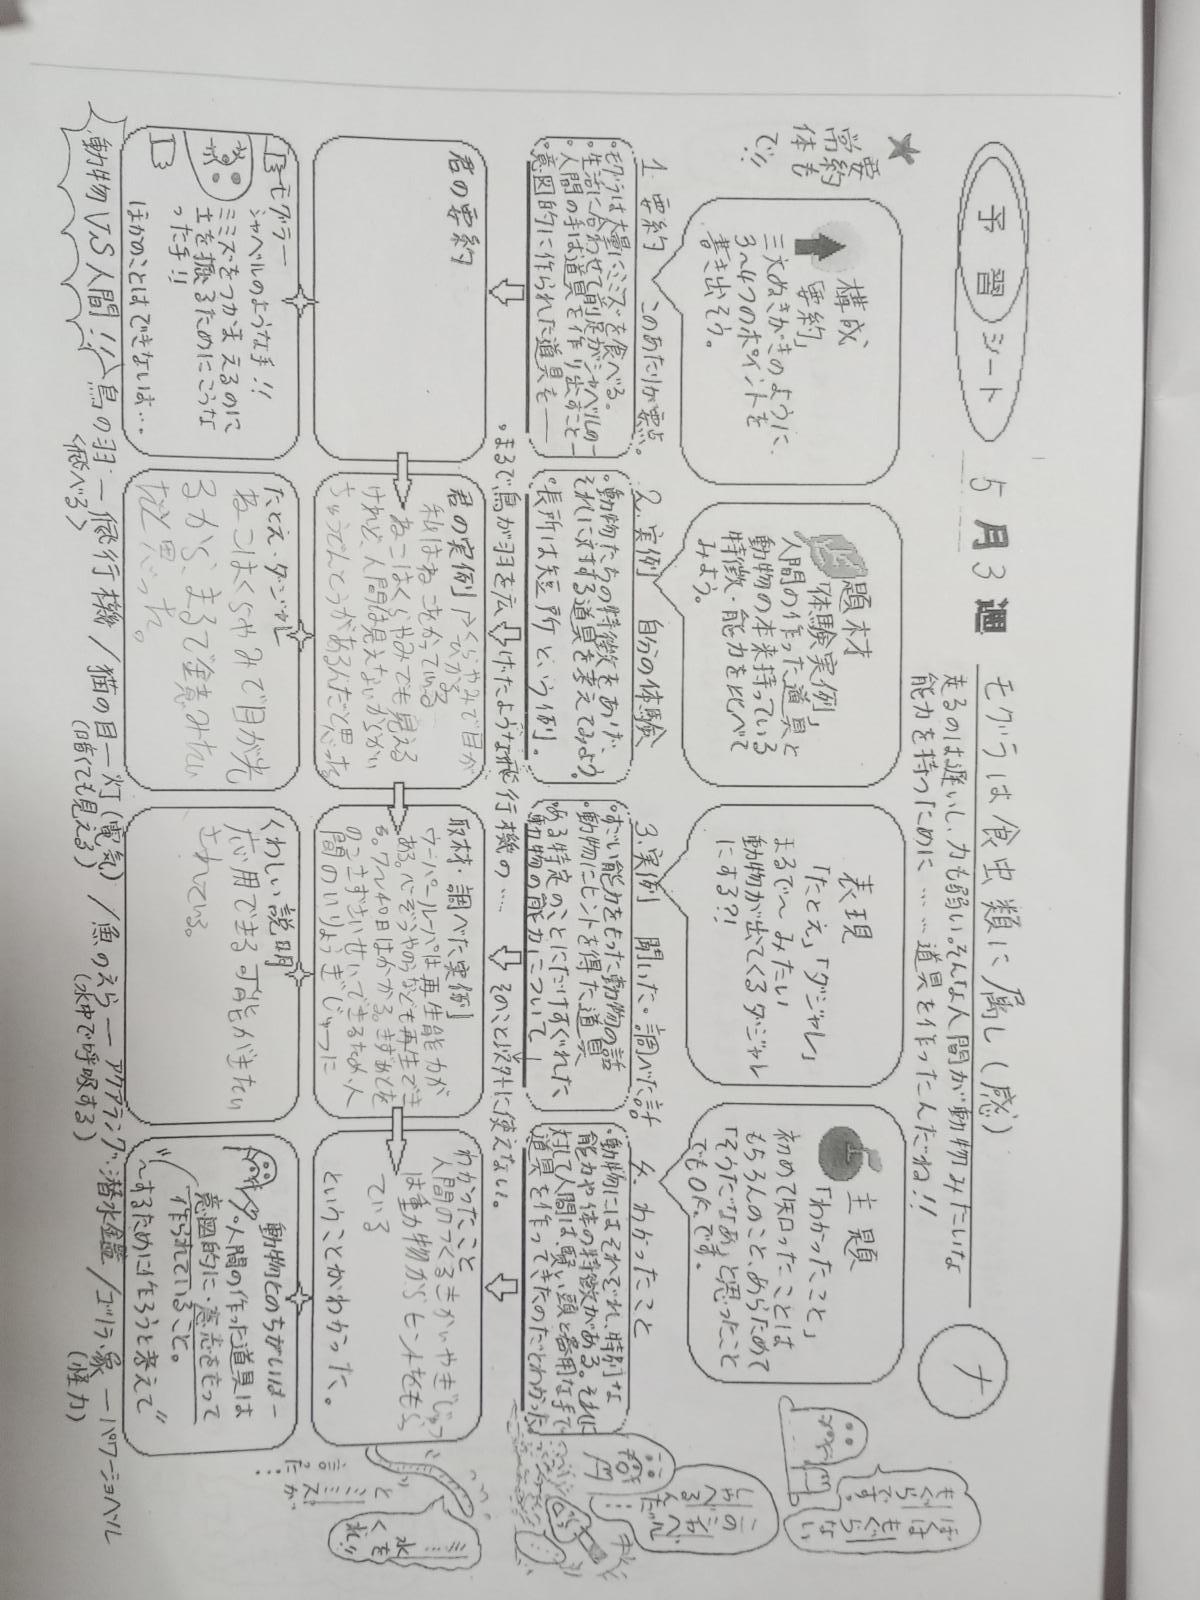 予習シート
5月3週
モグラは食虫類に属し(感)
走るのは遅いし、力も弱い。そんな人間が動物みたいな
能力を持つために……道具を作ったんだね!!
ナ
★
要約
常体も
で!!
構成
「要約」
三文ぬきがきのように、
3〜4つのポイントを
書き出そう。
題材
「体験実例」
人間の作った道具と
動物の本来持っている
特徴・能力を比べて
みよう。
表現
「たとえ」「ダジャレ」
まるで〜みたい
動物が出てくるダジャレ
にする?!
主題
「わかったこと」
初めて知ったことは
もちろんのこと、あらためて
「そうだなあ」と思ったこと
でもOK.です。
1. 要約 このあたりが要点。
・モグラは大量にミミズを食べる。
・生活に合わせて前足がシャベルのー
・人間の手は道具を作り出すことー
・意図的に作られた道具をー
2. 実例 自分の体験
・動物たちの特徴をあげ、
それに対する道具を考えてみよう。
・長所は短所という例。
3. 実例 聞いた・調べた話
・すごい能力をもった動物の話
・動物にヒントを得た道具
・ある特定のことにだけすぐれた
動物の能力について
4. わかったこと
・動物にはそれぞれ、特別な
能力や体の特徴がある。それに
対して人間は、賢い頭と器用な手で
道具を作ってきたのだとわかった。
・まるで鳥が羽を広げたような飛行機の…… そのこと以外に使えない。
君の要約
君の実例
私はねこをかっている
ねこはくらやみでも見える
けれど、人間は見えないからかい
ちゅうでんとうがあるんだと思った
取材・調べた実例
ウーパールーパは再生能力が
ある。心ぞうやのうなども再生でき
る。
わかったこと
人間のつくるきかいやぎじゅつ
は動物からヒントをもらっ
ている
ということがわかった。
モグラー
シャベルのような手!!
ミミズをつかまえるのに
土を掘るためにこうな
った手!!
ほかのことはできないは…
たとえ・ダジャレ
ねこはくらやみで目が光
るから、まるで
だと思った。
くわしい説明
応用できる可能がきたい
されている。
動物とのちがいはー
人間の作った道具は
意図的に・意志をもって
作られていること。
"〜するために作ろうと考えて"
動物VS人間!! 鳥の羽ー飛行機/猫の目ー灯(電気)/魚のえらーアクアラング・潜水艦/ゴリラ・象ーパワーショベル
<飛べる>
(暗くても見える)
(水中で呼吸する)
(怪力)
ぼくは
もぐらない
もぐらです。
この
シャベル
しゃべるんだべ
……
水
をくれ!!
とミミズが
言った…